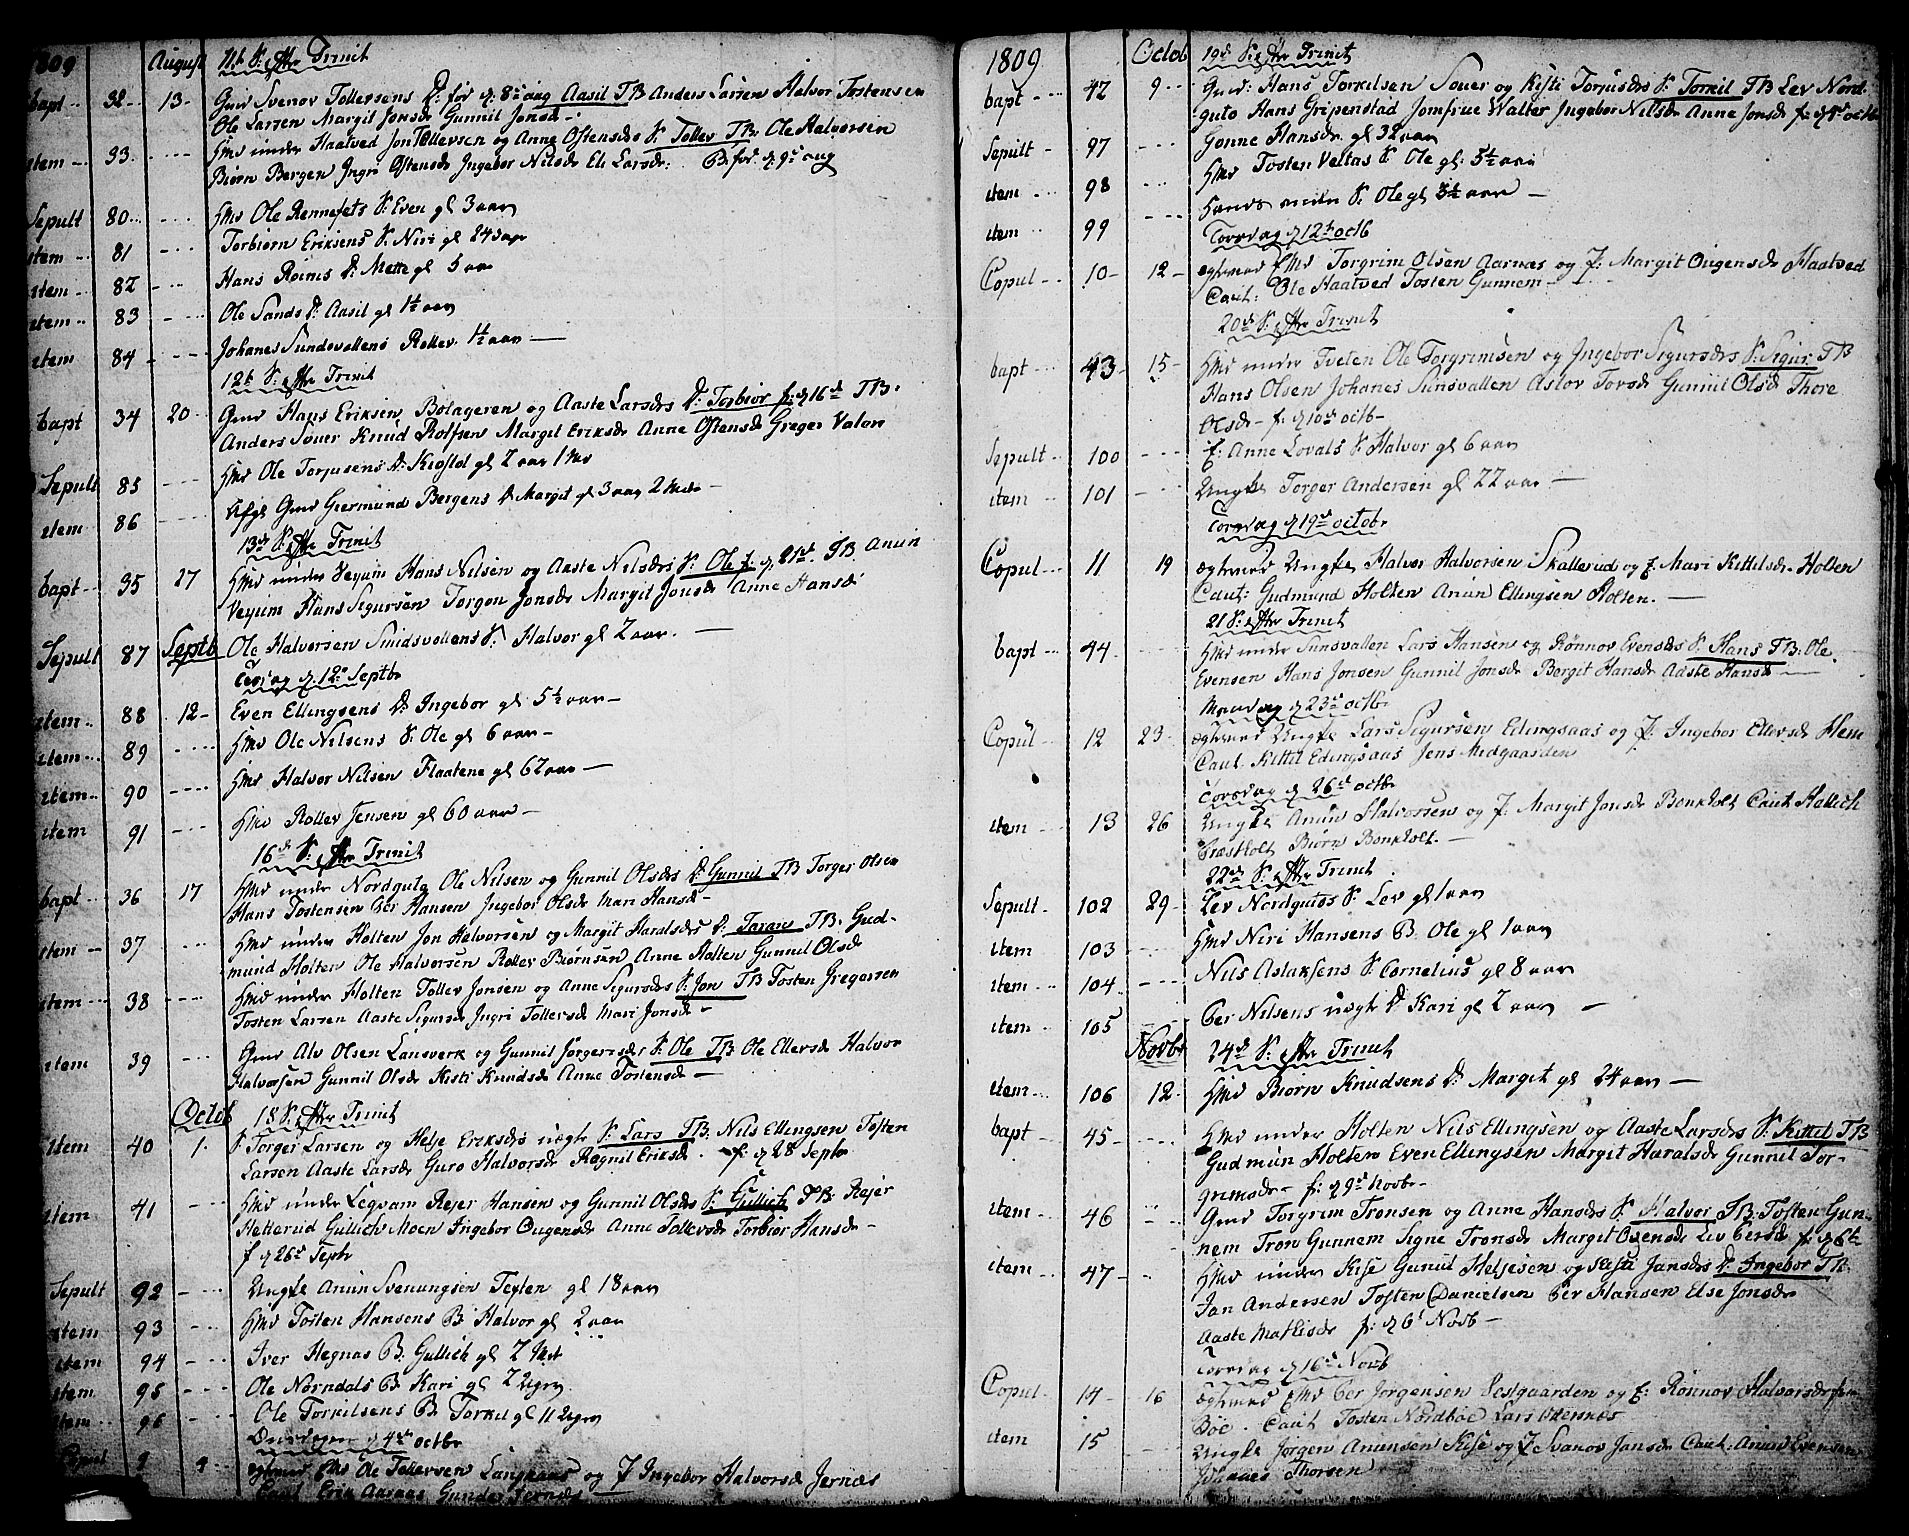 1809 August 11te S: efter Trinit
bapt 32 13 Gmd Svenov Tollefsens D: før d 8de aug Aasil TB Anders Larsen Halvor Tostensen
Ole Larsen Margit Jonsd Gunnil Jonsd
item 33 Hmd under Haatved Jon Tollevsen og Anne Ostensdr S. Tollev TB. Ole Halvorsen
Biørn Bergen Ingri Ostensdr Ingebor Nilsdr Eli Larsdr: d. 9de aug
Sepult 80 Hmd Ole Rennefets S. Even gl 3 aar
item 81 Torbiørn Eriksens S. Niri gl 24
item 82 Hans Roimis D. Mette gl 5 aar
item 83 Ole Sands D. Aasil gl 1½ aar
item 84 Johanes Sundsvallens Rollev. 1½ aar
12te S: efter Trinit
bapt 34 20 Gmd Hans Eriksen Bolageren og Aaste Larsdrs D. Torbior f: d 16de TB.
Anders Souer Knud Rolfsen Margit Eriksdr Anne Ostensdr Greger Valon
Sepult 85 Hmd Ole Torjusens D. Kiostol gl 2 aar 1 Md
item 86 Afgl Gmd Giermund Bergens D. Margit gl 3 aar 2 Mdr
13de S. efter Trinit
bapt 35 27 Hmd under Veyum Hans Nilsen og Aaste Nilsdrs S. Ole f. d. 21de. TB Anun
Veyum Hans Sigursen Torgon Jonsdr Margit Jonsdr Anne Hansdr
Sepult 87 Septb Ole Halvorsen Smidsvollens S. Halvor gl 2 aar.
Tisdag d. 12te Septbr
item 88 12 Even Ellingsens D. Ingebor gl 5½ aar
item 89 Hmd Ole Nilsens S. Ole gl 6 aar
item 90 Hmd Halvor Nilsen Flaatene gl 62 aar
item 91 Hmd Rollev Jensen gl 60 aar
16de S. efter Trinit
bapt 36 17 Hmd under Nordgutu Ole Nilsen og Gunnil Olsdrs D. Gunnil TB Torger Olsen
Hans Tostensen Per Hansen Ingebor Olsdr Mari Hansdr
item 37 Hmd under Holten Jon Halvorsen og Margit Haralsdrs D. Taran TB. Gud-
mund Holten Ole Halvorsen Rollev Biørnsen Anne Holten Gunnil Olsdr
item 38 Hmd under Holten Tollev Jonsen og Anne Sigursdrs S. Jon TB Tosten Gregersen
Tosten Larsen Aaste Sigursdr Ingri Tollevsdr Mari Jonsdr
item 39 Gmd Alv Olsen Lansverk og Gunnil Jørgensdrs S. Ole TB Ole Ellevsdr Halvor
Halvorsen Gunnil Olsdr Kisti Knudsdr Anne Tostensdr
Octob 18 S. efter Trinit
item 40 1. S. Torger Larsen og Helje Eriksdrs uægte S. Lars TB. Nils Ellingsen Tosten
Larsen Aaste Larsdr Guro Halvorsdr Ragnil Eriksdr. f: d 28 Septbr
item 41 Hmd under Legvam Rejer Hansen og Gunnil Olsdrs S. Gullich TB. Rejer
Hetterud Gullich Moen Ingebor Ougensdr Anne Tollevsdr Torbior Hansdr
f d 26de Septbr
Sepult 92 Ungkl Anun Svenungsen Teften gl 18 aar
item 93 Hmd Tosten Hansens B Halvor gl 2 aar
item 94 Iver Hegnas B. Gullich gl 7 Mdr
item 95 Ole Norndals B Kari gl 2 Ugr
item 96 Ole Torkilsens B Torkil gl 11 Ugr
Onsdagen d 4de octbr
Copul 9 4 egteviet Hmd Ole Tollevsen Langkaas og P Ingebor Halvorsdr Jernæs
Caut Erik Aasnas Gunder Jernæs
1809 Octob 19de S: efter Trinit
bapt 42 9 Gmd: Hans Torkilsen Souer og Kisti Torjusdrs S. Torkil TB Lev Nord-
guto Hans Gripenstad Jomfrue Walter Ingebor Nilsdr Anne Jonsdr f: d 4de octb
Sepult 97 Gonne Hansdr gl 32 aar
item 98 Hmd Tosten Veltas S. Ole gl: 5½ aar
item 99 S. Ole gl 3½ aar
Torsdag d 12te octb
Copul 10 12 egteviet Hmd Torgrim Olsen Aarnas og P: Margit Ougensdr Haatved
Caut: Ole Haatved Tosten Gunnem
20de S. efter Trinit
bapt 43 15 Hmd under Tveten Ole Torgrimsen og Ingebor Sigursdrs S. Sigur TB
Hans Olsen Johanes Sunsvallen Aslov Torsdr Gunnil Olsdr Thore
Olsdr f: d 10de octb
Sepult 100 E: Anne Lovals S. Halvor gl 6 aar
item 101 Ungkl Torger Andersen gl 22 aar
Torsdag d 19de octobr
Copul 11 19 egteviet Ungkl Halvor Halvorsen Skallerud og P. Mari Kittilsdr Holten
Caut: Gudmund Holten Anun Ellingsen Holten.
21 S: efter Trinit
bapt 44 Hmd under Sunsvallen Lars Hansen og Rønnov Evensdrs S. Hans TB. Ole
Evensen Hans Jonsen Gunnil Jonsdr Bergit Hansdr Aaste Hansdr
Mandag d 23de octbr
Copul 12 23 egteviet Ungkl Lars Sigursen Edingsaas og P. Ingebor Ellevsdr Hem
Caut. Kittil Edingsaas Jens Midgaarden
Torsdag d 26de octbr
item 13 26 Ungkl Anun Halvorssen og P. Margit Jonsdr Bonkholt Caut Hallich
Præstholt Biørn Bonkholt.
22de S. efter Trinit
Sepult 102 29 Lev Nordgutos S. Lev gl 1 aar
item 103 Hmd Niri Hansens B. Ole gl 1 aar
item 104 Nils Aslaksens S. Cornelius gl 8 aar
item 105 Per Nilsens uægte D. Kari gl 2 aar
Novbr 24de S. efter Trinit
item 106 12 Hmd Biørn Knudsens D. Margit gl 24 aar
bapt 45 Hmd under Holten Nils Ellingsen og Aaste Larsdrs S. Kittil TB
Gudmun Holten Even Ellingsen Margit Haralsdr Gunnil Tor-
grimsdr f: d 9de Novbr
item 46 Gmd Torgrim Tronsen og Anne Hansdrs S. Halvor TB. Tosten Gun-
nem Tron Gunnem Signe Tronsdr Margit Ovensdr Liv Persdr f: d 6te
item 47 Hmd under Kise Gunul Heljesen og Kisti Jansdrs D. Ingebor TB.
Jan Andersen Tosten Danielsen Per Hansen Else Jonsdr
Aaste Mathisdr f: d 6te Novb
Torsdag d 16de Novb
Copul 14 16 egteviet Hmd Per Jorgensen Vestgaarden og P. Rønnov Halvorsdr
Bøe. Caut Tosten Nordbøe Lars Odersnes
item 15 Ungkl Jørgen Anunsen Kise og P Svanov Jansdr Caut. Anun Evensen
Johannes Thorsen